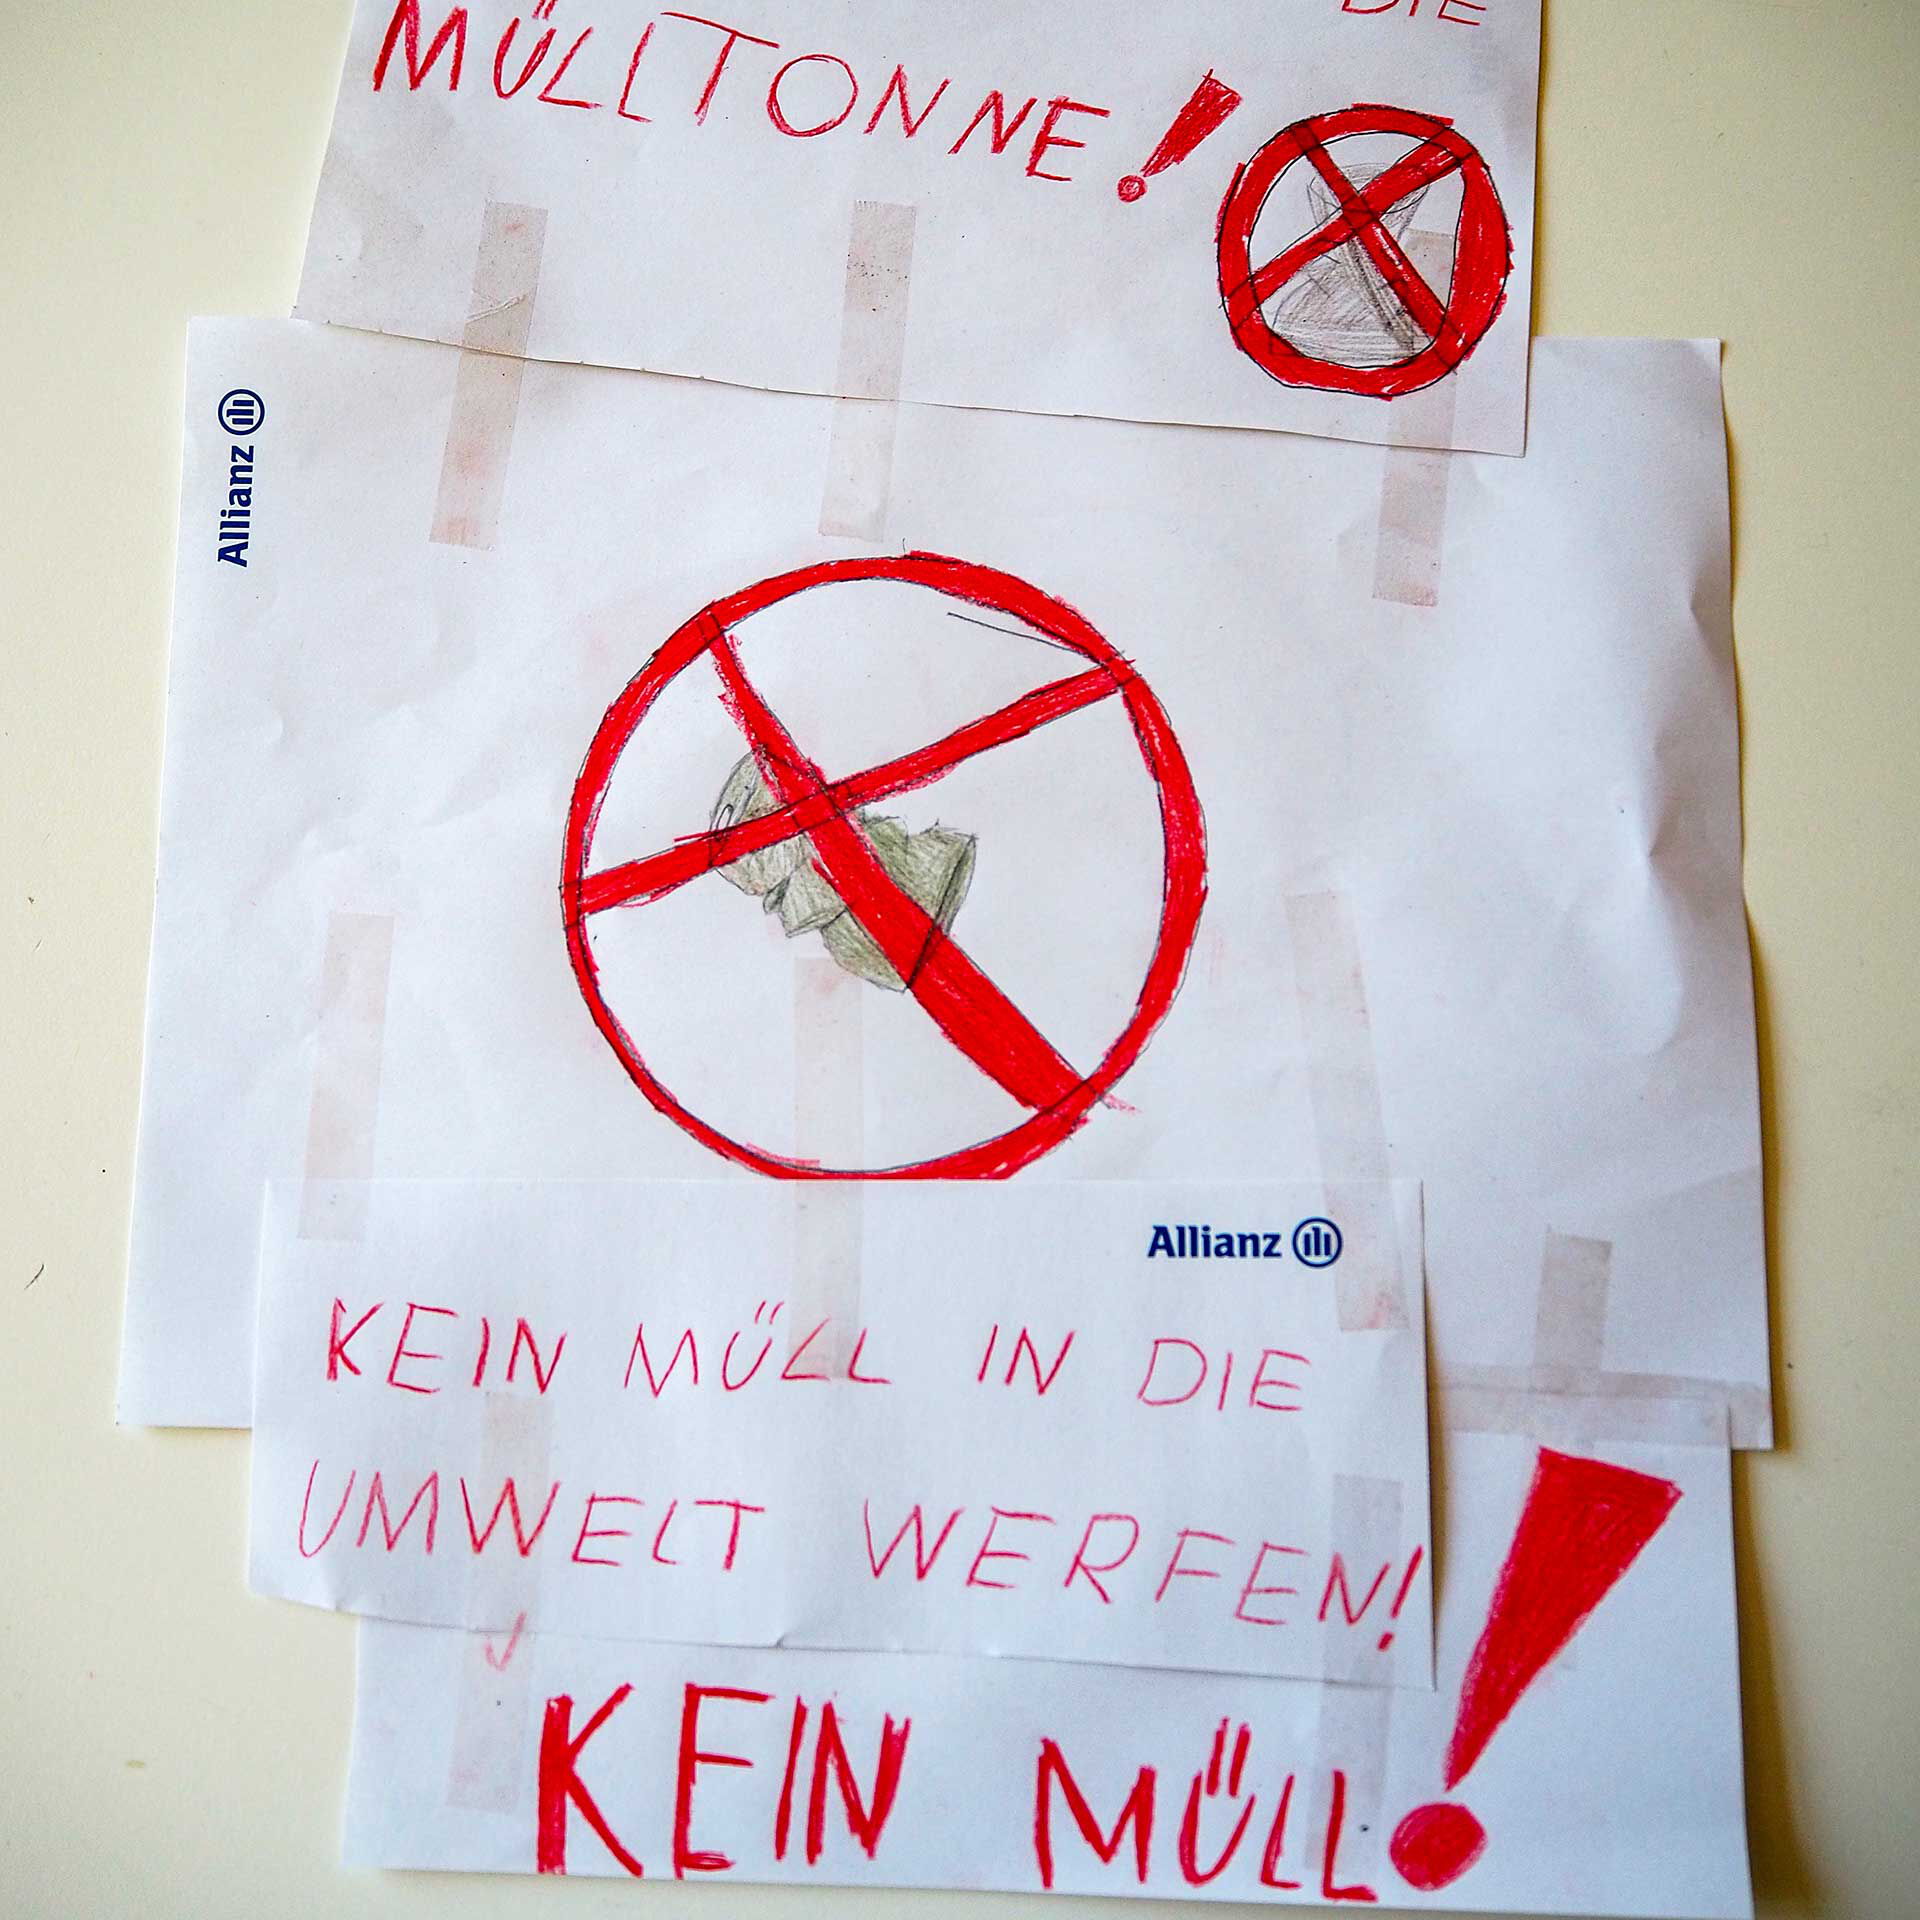 DIE
MÜLLTONNE!
Allianz
Allianz
KEIN MÜLL IN DIE
UMWELT WERFEN!
KEIN MÜLL!